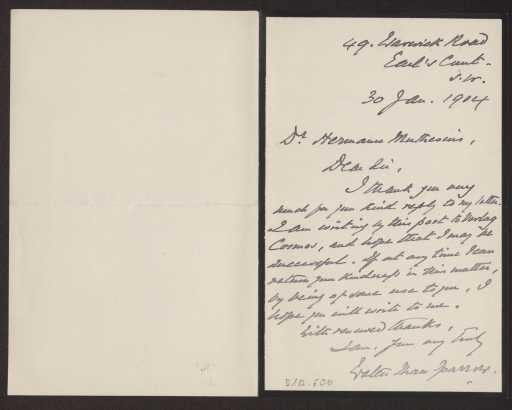 49. Warwick Road
Earl's Court -
S.W.
30 Jan. 1904
Dr. Hermann Muthesius,
Dear Sir,
I thank you very
much for your kind reply to my letter.
I am writing by this post to Verlag
Cosmos, and hope that I may be
successful. If at any time I can
return your kindness in this matter,
by being of some use to you, I
hope you will write to me.
With renewed thanks,
I am, yours very truly
Walter Shaw Sparrow.